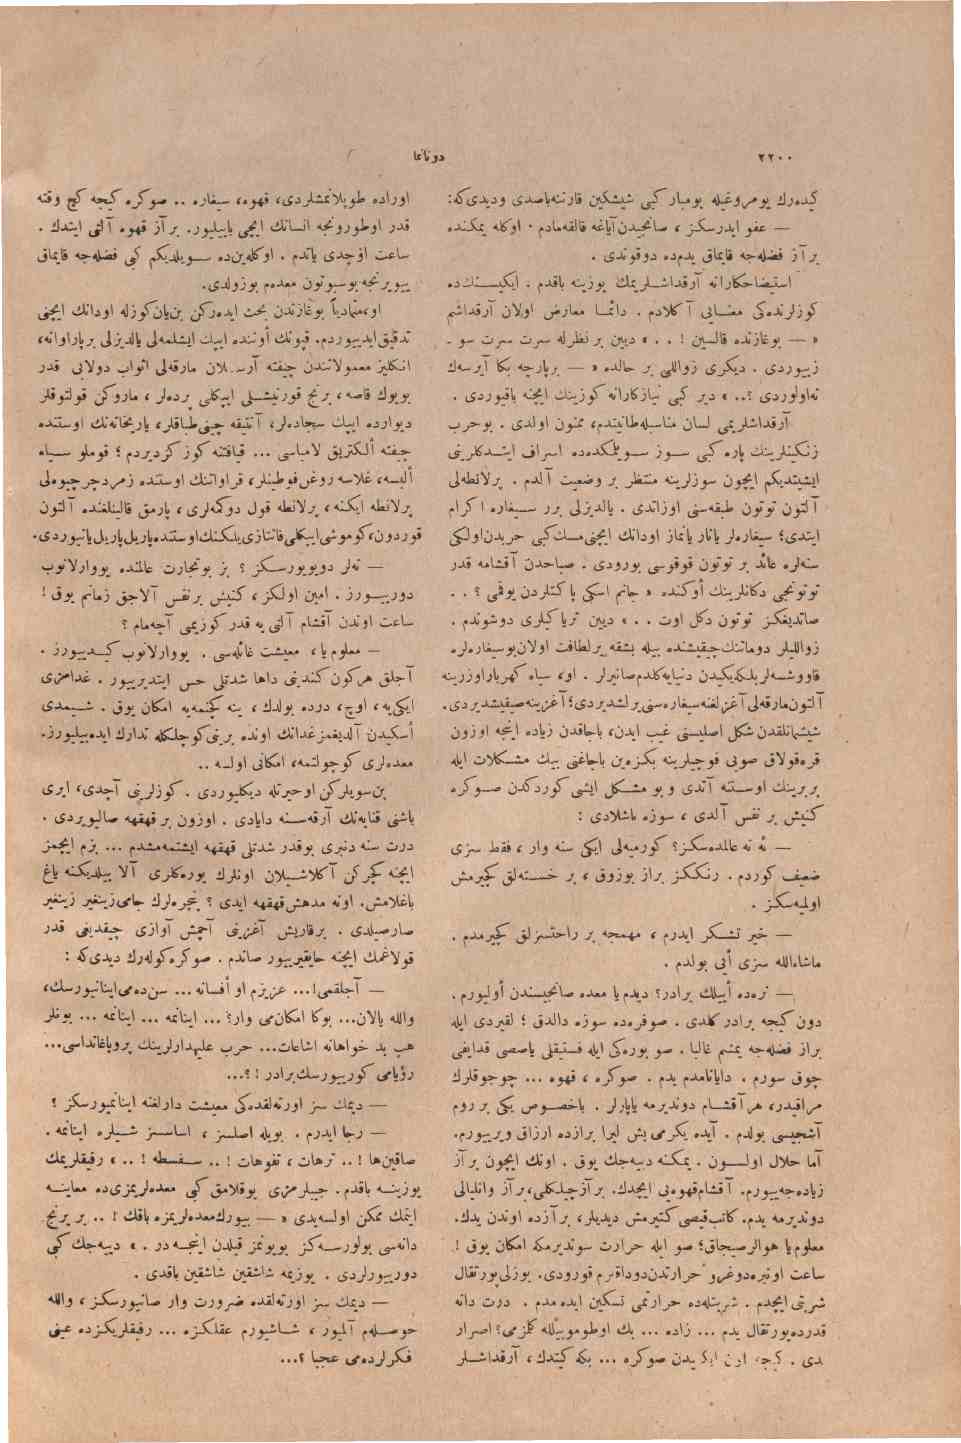 ٢٢٠٠
دوناما
كیده‌رك یومروغیله بومبار كبی شیشكین قارننه باصدی ودیدی‌كه:
— عفو ایدرسكز ، صانجیدن آیاغه قالقه‌مادم . اوكله یمكنده
بر آز فضله‌جه قایماق یدم‌ده دوقوندی .
استیضاحكارانه آرقداشلریمك یوزینه باقدم . ایكیسنك‌ده
كوزلرنده‌كی معنایی آكلادم . دائما معارض اولان آرقداشم
« — بوغازنده قالسین ! . . » دیین بر نظرله سرت سرت سو ـ
زییوردی . دیكری زواللی بر حالده « — برپارچه بكا آیرسه‌ك
نه‌اولوردی ؟.. » دیر كبی نیازكارانه كوزینك ایچنه باقیوردی .
آرقداشلریمی لسان مناسبله طانیتدم، ممنون اولدی . بوحرب
زنكینلرینك پاره كبی سوز سویلمكده‌ده اسراف ایتدكلرینی
ایشیتدیكم ایچون سوزلرینه منتظر بر وضعیت آلدم . پرلانطه‌لی
آلتون توتون طبقه‌سنی اوزاتدی . یالدیزلی برر سیغاره اكرام
ایتدی؛ سیغاره‌لر یانار یانماز اودانك ایچنی مسك كبی حربدن اولكی
سنه‌لره عائد بر توتون قوقوسی بورودی . صباحدن آقشامه قدر
توتونجی دكانلرینك أوكنده « جانم اسكی پاكتلردن یوقمی ؟ . .
صاتدیغكز توتون دكل اوت . . » دیین تریاكیلری دوشوندم .
زواللیلر دومانك چیقیشنده بیله بشقه برلطافت اولان بوسیغاره‌لره
قاووشسه‌لر یكیدن دنیایه كلدم صانیرلر . او، سیاه كهربار اوزرینه
آلتون مارقه‌لی آغزلغنه سیغاره‌سنی یرلشدیردی؛ آغزینه صیقیشدیردی.
شیشمانلقدن شكل اصلیسنی غیب ایدن، باجاقدن زیاده اینجه اوزون
قره‌قولاق صوبی قوجیلرینه بكزه‌ین باجاغنی بیك مشكلات ایله
بربرینك اوستنه آتدی و بو مشكل ایشی كوردكدن صوكره
كنیش بر نفس آلدی ، سوزه باشلادی :
— ئه نه عالمده‌سكز؟ كورمیه‌لی ایكی سنه وار ، فقط سزی
ضعیف كوردم . رنككز براز بوزوق ، بر خسته‌لق كچیرمش
اولمیه‌سكز .
— خیر تشكر ایدرم ، مهمجه بر راحتسزلق كچیرمدم .
ماشاءالله سزی أیی بولدم .
— نره‌ده أییلك برادر؟ دیدم یا معده صانجیسندن أولیورم .
دون كیجه برادر كلدی . صوفره‌ده سوزه دالدق ؛ لقیردی ایله
براز فضله‌جه یمشم غالبا . صو بوره‌كی ایله فستیقلی یاصصی قدایفی
چوق سورم . دایانامادم یدم . صوكره ، قهوه ... چوجوقلرك
مراقیدر، هر آقشام دوندیرمه یاپارلر . باخصوص یكی بر روم
آشجیسی بولدم . آیده یكرمی بش لیرا برازده ارزاق ویرییورم.
أما حلال اولسون . یمكنه دییه‌جك یوق . اونك ایچون بر آز
زیاده‌جه ییورم. آقشام قهوه‌یی ایچدك. بر آز چیلكلی، بر آز وانیلیالی
دوندیرمه یدم. كاتب قیصی كتیرمش دیدیلر، بر آزده اوندن یدك.
معلوم یا هوالر صیجاق؛ صو ایله حرارت سوندیرمكه امكان یوق !
ساعت اونبره‌دوغرو حرارتدن دوداقلرم قورودی. بوزلی پورتقال
شربتی ایچدم . شربتله‌ده حرارتمی تسكین ایده‌مدم . درت دانه
قدرده پورتقال یدم ... زاده ... بك اوطوموبیلله كلزمی؟ اصرار
ایدی . كیجه اون ایكیدن صوكره ... بكه كیتدك، آرقداشلر
اوراده طوپلانمشلردی، قهوه، سیغاره .. صوكره كیجه كچ وقته
قدر اوطورونجه انسانك ایچی باییلیور. بر آز قهوه آلتی ایتدك .
ساعت اوچدی یاتدم . اوكله‌ین‌ده سویلدیكم كبی فضله‌جه قایماق
ییویرنجه بوسبوتون معده‌م بوزولدی.
او، متمادیاً بوغازندن بحث ایده‌ركن بن یان كوزله اودانك ایچنی
تدقیق ایدییوردم. قپونك أوننده ایپك ایشلمه‌لی یالدیزلی برپاراوانه،
انكلیز معمولاتندن چیفته آرسلان مارقه‌لی اثواب دولابی قدر
بویوك قاصه ، برنج قورنیشلی ایپكلی پرده‌لر ، ماروكن قولتوقلر
دیوارده ایپك سجاده‌لر، آنتیقه چینی طباقلر ، یازیخانه‌نك اوستنده
چیفته ألكتریق لامباسی ... قیافتنه كوز كزدیردم ؛ قوملو سیاه
ألبسه، غلاسه روغن فوطینلر، قراواتنك اوستنده زمرد چرچیوه‌لی
پرلانطه ایكنه ، پرلانطه قول دوكمه‌لری ، پارمق قالینلغنده آلتون
قوردون، كوموشی ایپكلی فانتازی یلكنك اوستنده پاریل پاریل یانیوردی.
— نه‌لر دویویورسكز ؟ بز بوتجارت عالمنده یووارلانوب
دورییورز . امین اولكز ، كنیش برنفس آلاجق زمانم یوق !
ساعت اوندن آقشام آلتی یه قدر كوزیمی آچه‌مام ؟
— معلوم یا ، معیشت غائله‌سی . یووارلانوب كیدییورز .
آجلق هركون كندینی داها شدتلی حس ایتدیرییور . غدامزی
ایكی‌یه ، اوچه ، درده بولدك ، ینه كچنمه‌یه امكان یوق . شیمدی
أسكیدن آلدیغمز غدانك اونده برینی كوچلكله تدارك ایده‌بیلیورز.
معده‌لری كوچولتمه‌، امكانی اولسه ..
بن سویلركن او حیرتله دیكلیوردی . كوزلرینی آچدی، ایری
باشنی قنابه‌نك آرقه‌سنه دایادی . اوزون بر قهقهه صالیویردی .
درت سنه دنبری بوقدر شدتلی قهقهه ایشتمه‌مشدم ... بزم ایچمز
ایچنه كچركن آكلاشیلان اونلرك یوره‌كلری آلا بیلدیكنه یاغ
باغلامش. اونه مدهش قهقهه ایدی ؟ پنجره‌لرك جامی زینغیر زینغیر
صارصیلدی . برقاریش آغزینی آچمش آوازی چیقدیغی قدر
قولاغمك ایچنه حایقیرییور صاندم . صوكره كوله‌رك دیدی‌كه :
— آجلقمی!... عزیزم او أفسانه ... سن‌ده‌می اینانیورسك،
والله یالان... بوكا امكان‌می وار؟ ... اینانمه ... اینانمه ... بونلر
هپ بد خواهانه اشاعات... حرب علیهدارلرینك پروپاغانداسی...
رؤیامی كورییورسك برادر ! ؟...
— دیمك سز اورته‌لقده‌كی معیشت دارلغنه اینانمیورسكز ؟
— رجا ایدرم . بویله اصلسز ، اساسسز شیلره اینانمه .
صاقین ها ! .. ترهات ، تفوهات ! .. سفسطه ! .. ، رفیقلریمك
یوزینه باقدم . جیبلرمزی یوقلامق كبی معده‌لریمزی‌ده معاینه
ایتمك ممكن اولسه‌یدی « — بیورك معده‌لریمزه باقك ! .. بر برنج
دانه‌سی بولورسه‌كز بویونمز قیلدن اینجه‌در . » دییه‌جك كبی
دورییورلردی . یوزیمه شاشقین شاشقین باقدی .
— دیمك سز اورته‌لقده ضرورت وار صانیورسكز ، والله
حوصله‌م آلمیور ، شاشیورم عقلكزه ... رفیقلریكزده عینی
فكرلرده‌می عجبا ؟...